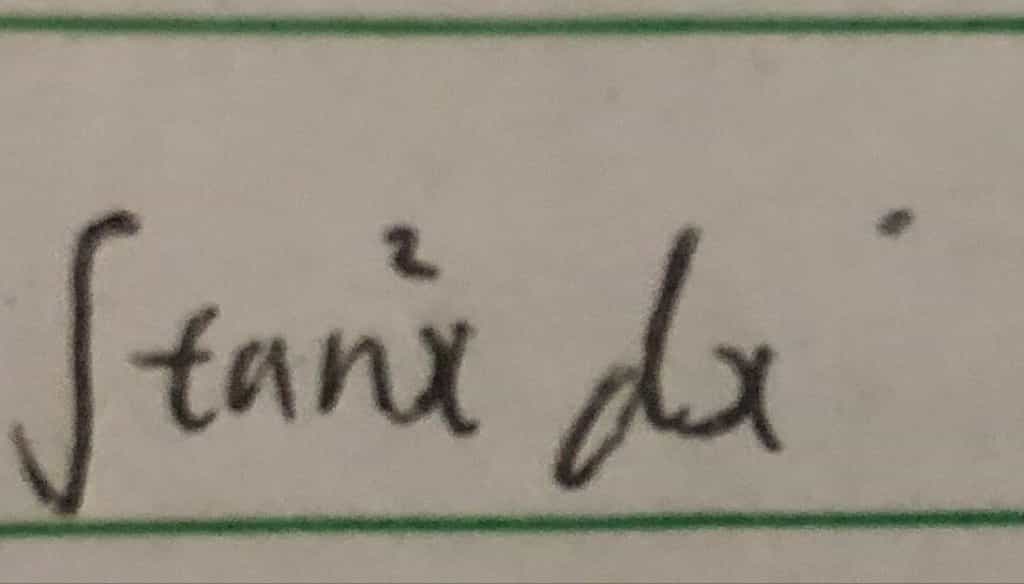 ∫tan²x dx